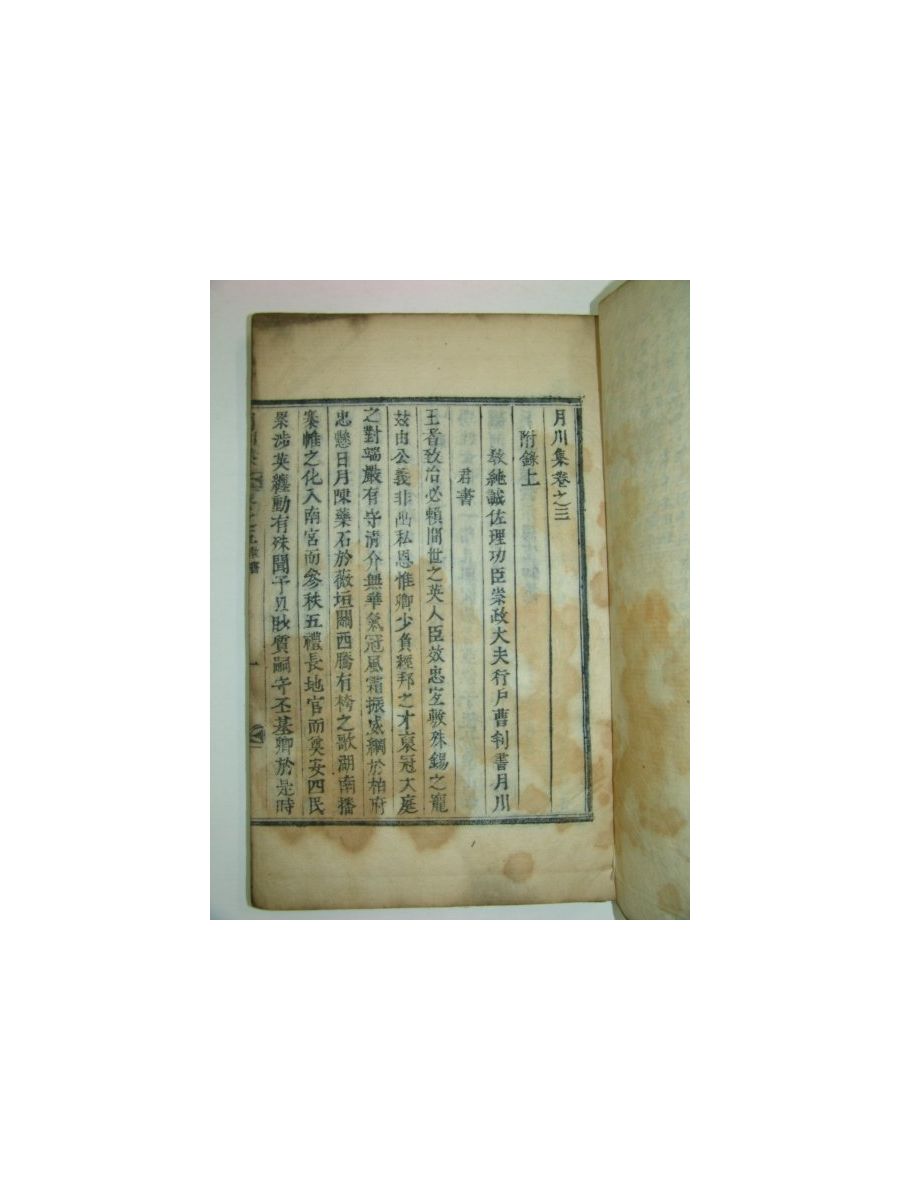 月川集卷之三
附錄上
敎純誠佐理功臣崇政大夫行戶曹判書月川
君書
王者致治必賴間世之英人臣效忠宜敷殊錫之寵
玆由公義非啚私恩惟卿少負經邦之才裒冠大庭
之對端嚴有守淸介無華氣冠風霜振威綱於栢府
忠懸日月陳藥石於薇垣關西騰有袴之歌湖南播
褰帷之化入南宮而參秩五禮長地官而奠安四民
累涉英纏動有殊聞予以眇質嗣守丕基卿於是時